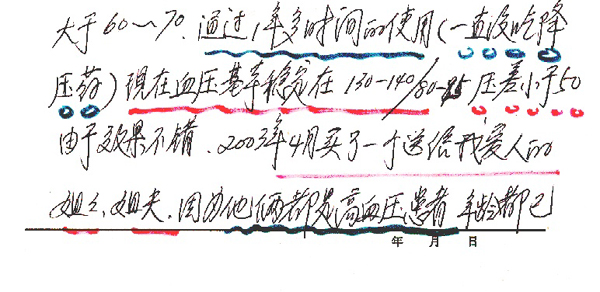 大于60～70.通过1年多时间的使用(一直没吃降
压药)现在血压基本稳定在130-140/80-85压差小于50
由于效果不错.2003年4月买了一个送给我爱人的
姐々、姐夫.因为他俩都是高血压患者 年龄都已
年 月 日